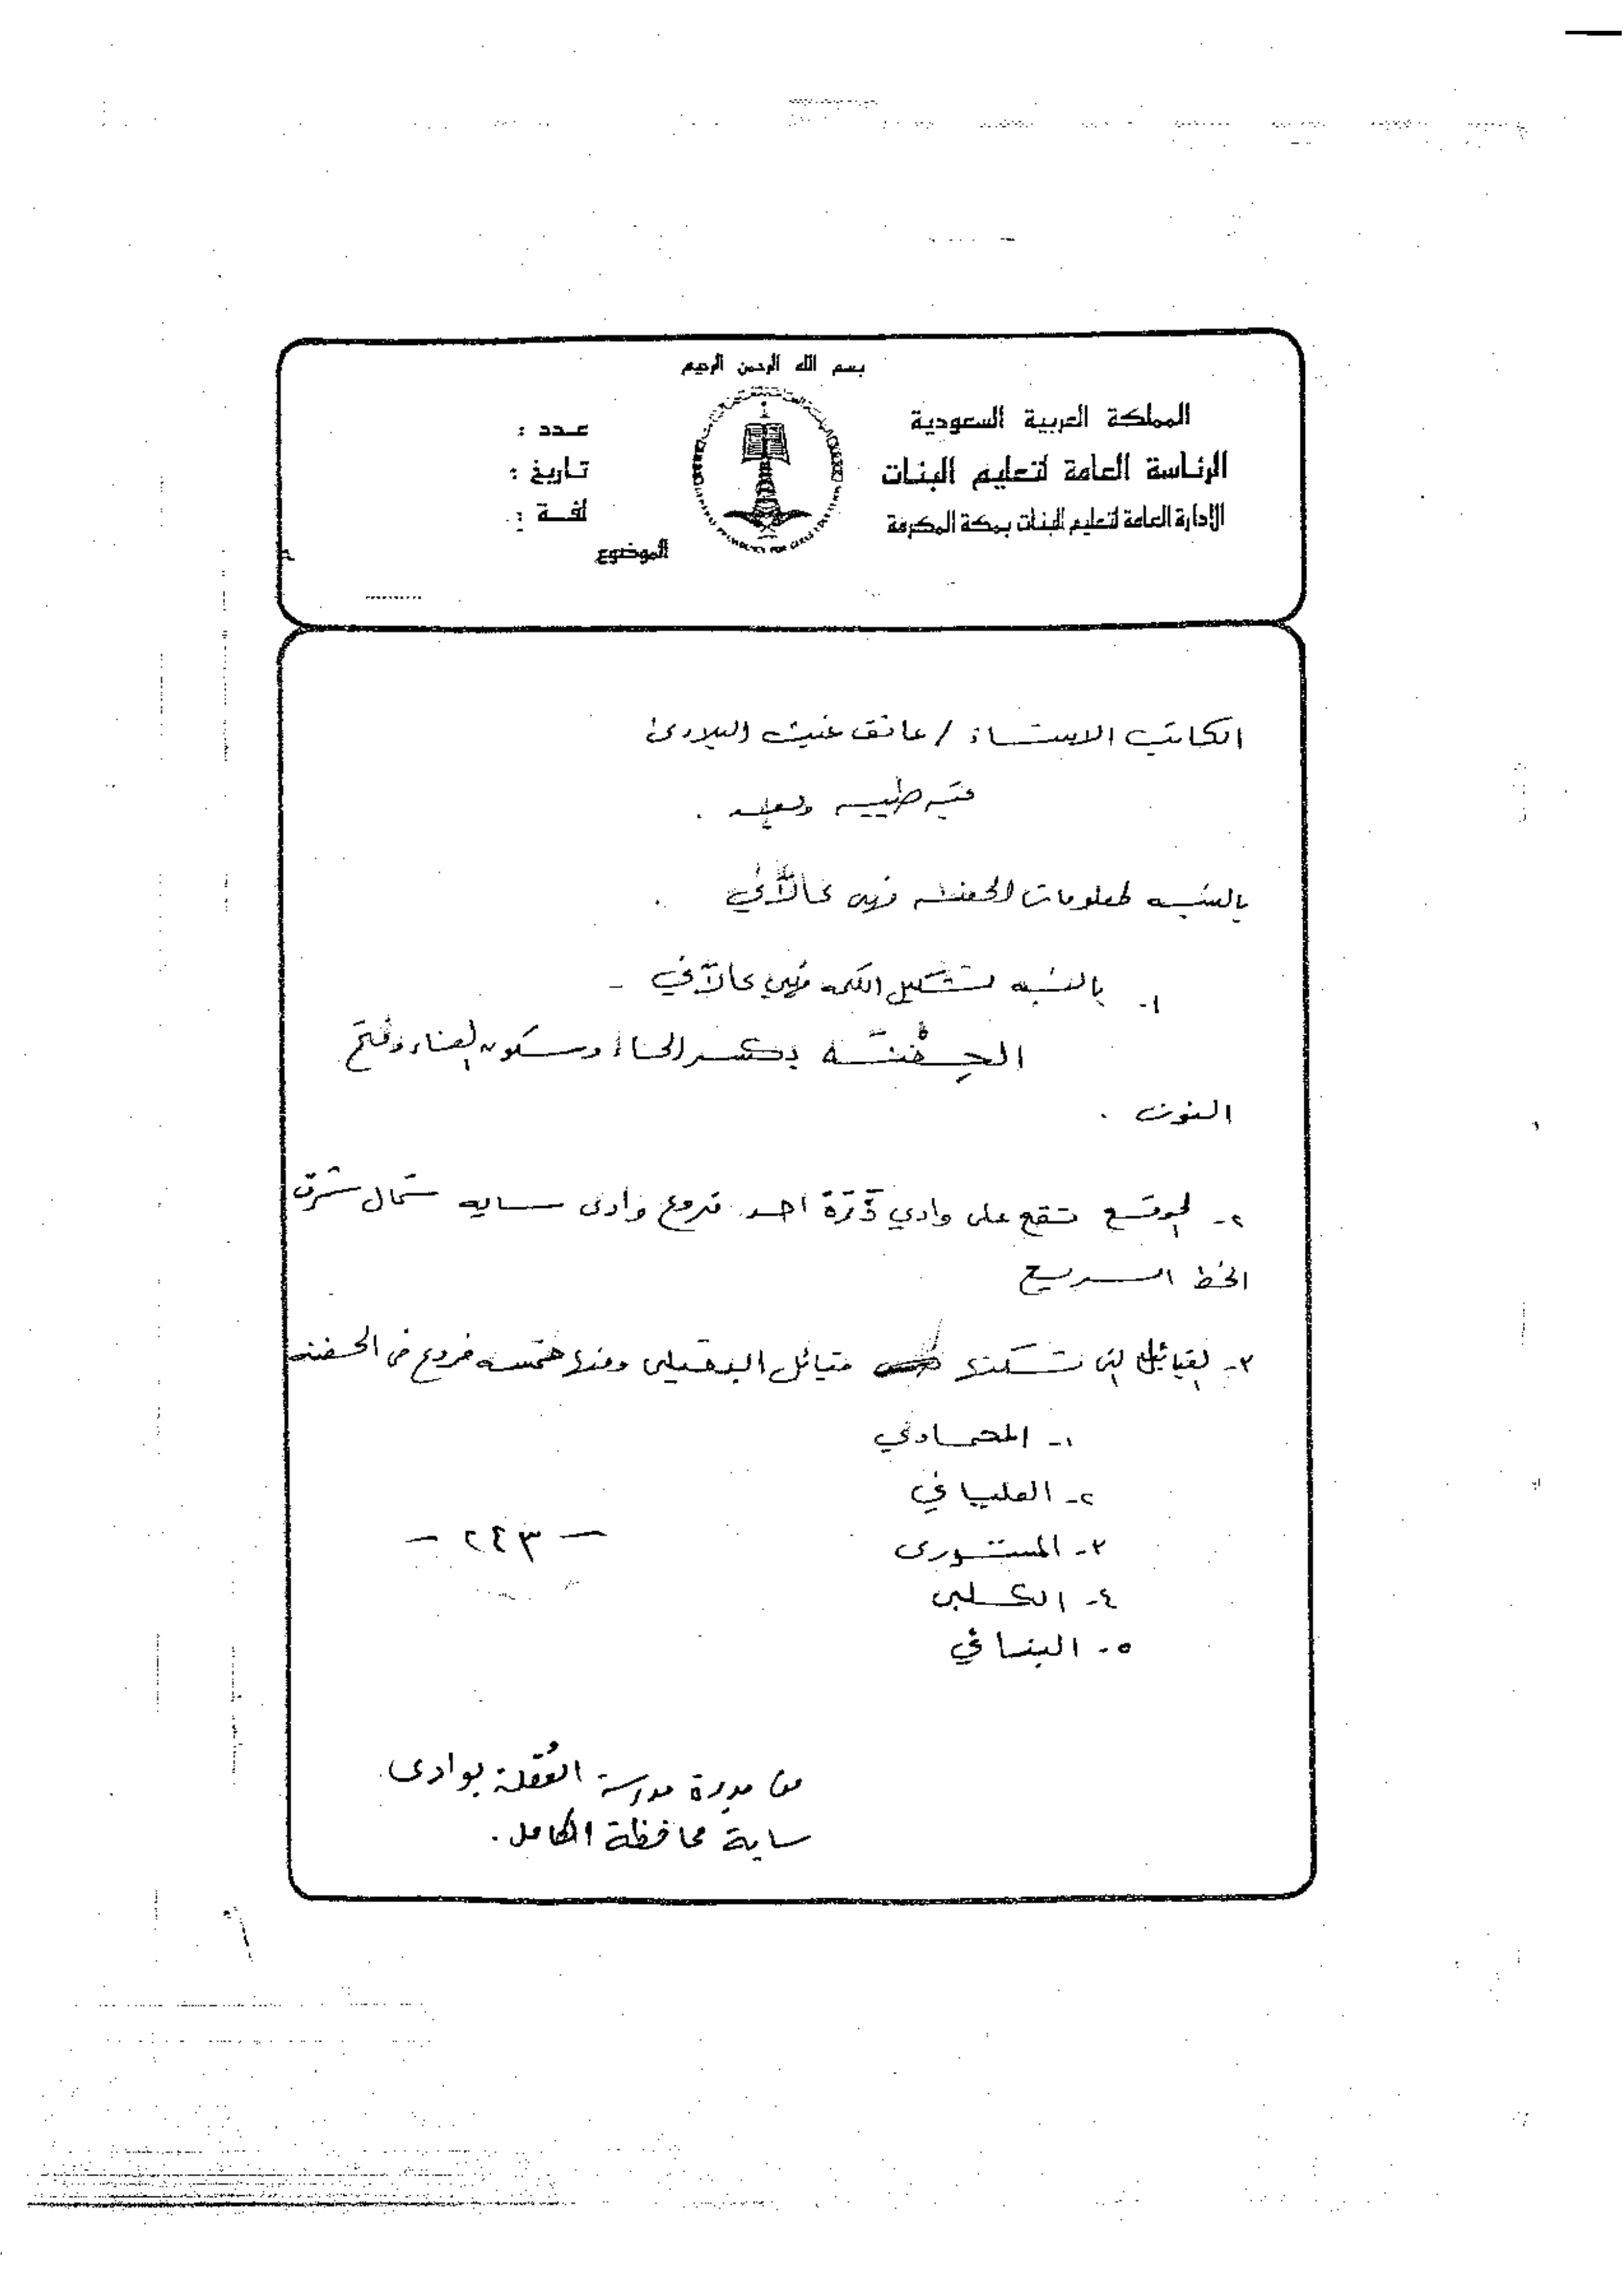 بسم الله الرحمن الرحيم
المملكة العربية السعودية
الرئاسة العامة لتعليم البنات
الإدارة العامة لتعليم البنات بمكة المكرمة
عدد :
تاريخ :
لفة :
الموضوع
الكاتب الاستاذ / عاتق غيث البلادى
طيبه وبعد .
بالنسبه لمعلومات الحفنه فهى كالآتي .
١- بالنسبه لتشكيل الكلمه فهي كالآتي -
الحِفْنَه بكسر الحاء وسكون الفاء وفتح
النون .
٢- الموقع تقع على وادي ذَرَة احد فروع وادى سايه شمال شرق
الخط السريع
٣- القبائل التى تسكنها قبائل ومنها خمسه فروع فى الحفنه
١- المحمادي
٢- العلياني
٣- المستورى
٤- الكلبى
٥-
- ٢٤٣ -
من مديرة مدرسة العُقلة بوادى
ساية محافظة الكامل .